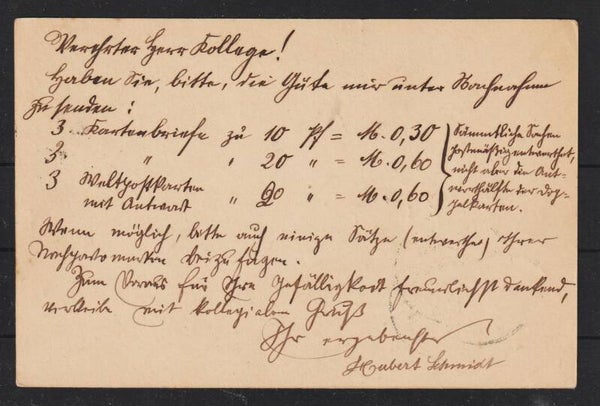 Verehrter Herr Kollege!
Haben Sie, bitte, die Güte mir unter Nachnahme
zu senden:
3 Kartenbriefe zu 10 Pf = M. 0,30
3 " " 20 " = M. 0,60
3 Weltpostkarten
mit Antwort " 20 " = M. 0,60
Sämmtliche Sachen
postmäßig entwerthet,
nicht aber die Ant-
worthälfte der Dop-
pelkarten.
Wenn möglich, bitte auch einige Sätze (entwerthe) Ihrer
beizufügen.
Zum Voraus für Ihre Gefälligkeit freundlichst dankend,
verbleibe mit kollegialem Gruß
Ihr ergebenster
Hubert Schmidt